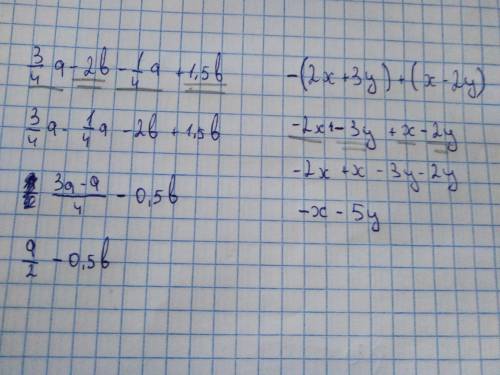 3/4 a - 2b - 1/4 a + 1,5b
3/4 a - 1/4 a - 2b + 1,5b
(3a - a)/4 - 0,5b
a/2 - 0,5b
-(2x+3y)+(x-2y)
-2x - 3y + x - 2y
-2x + x - 3y - 2y
-x - 5y